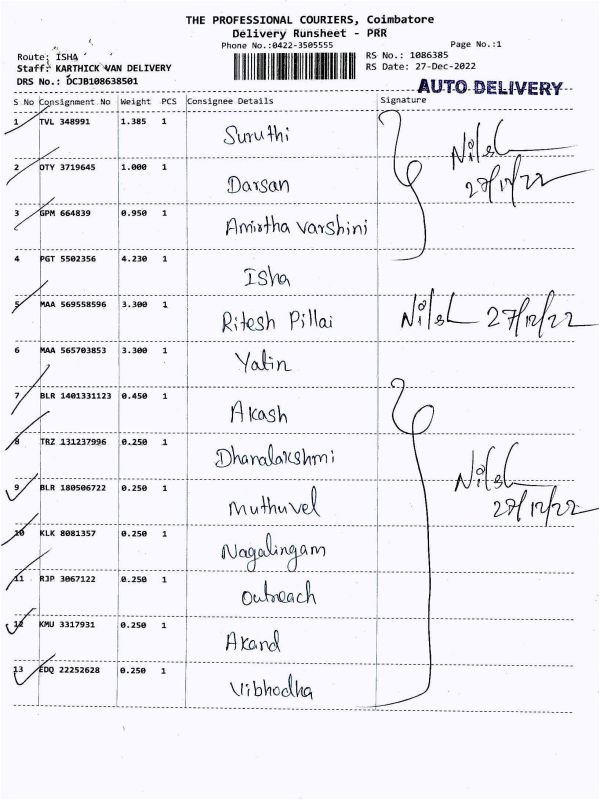 THE PROFESSIONAL COURIERS, Coimbatore
Delivery Runsheet - PRR
Phone No.:0422-3505555
Page No.:1
Route: ISHA
RS No.: 1086385
Staff: KARTHICK VAN DELIVERY
RS Date: 27-Dec-2022
DRS No.: DCJB108638501
AUTO DELIVERY
S No Consignment No Weight PCS Consignee Details Signature
1 TVL 348991 1.385 1 Suruthi
Nilesh
27/12/22
2 OTY 3719645 1.000 1 Darsan
3 GPM 664839 0.950 1 Amirtha varshini
4 PGT 5502356 4.230 1 Isha
5 MAA 569558596 3.300 1 Ritesh Pillai Nilesh 27/12/22
6 MAA 565703853 3.300 1 Yatin
7 BLR 1401331123 0.450 1 Akash
8 TRZ 131237996 0.250 1 Dhanalakshmi
Nilesh
27/12/22
9 BLR 180506722 0.250 1 Muthuvel
10 KLK 8081357 0.250 1 Nagalingam
11 RJP 3067122 0.250 1 Outreach
12 KMU 3317931 0.250 1 Akand
13 EDQ 22252628 0.250 1 Vibhodha